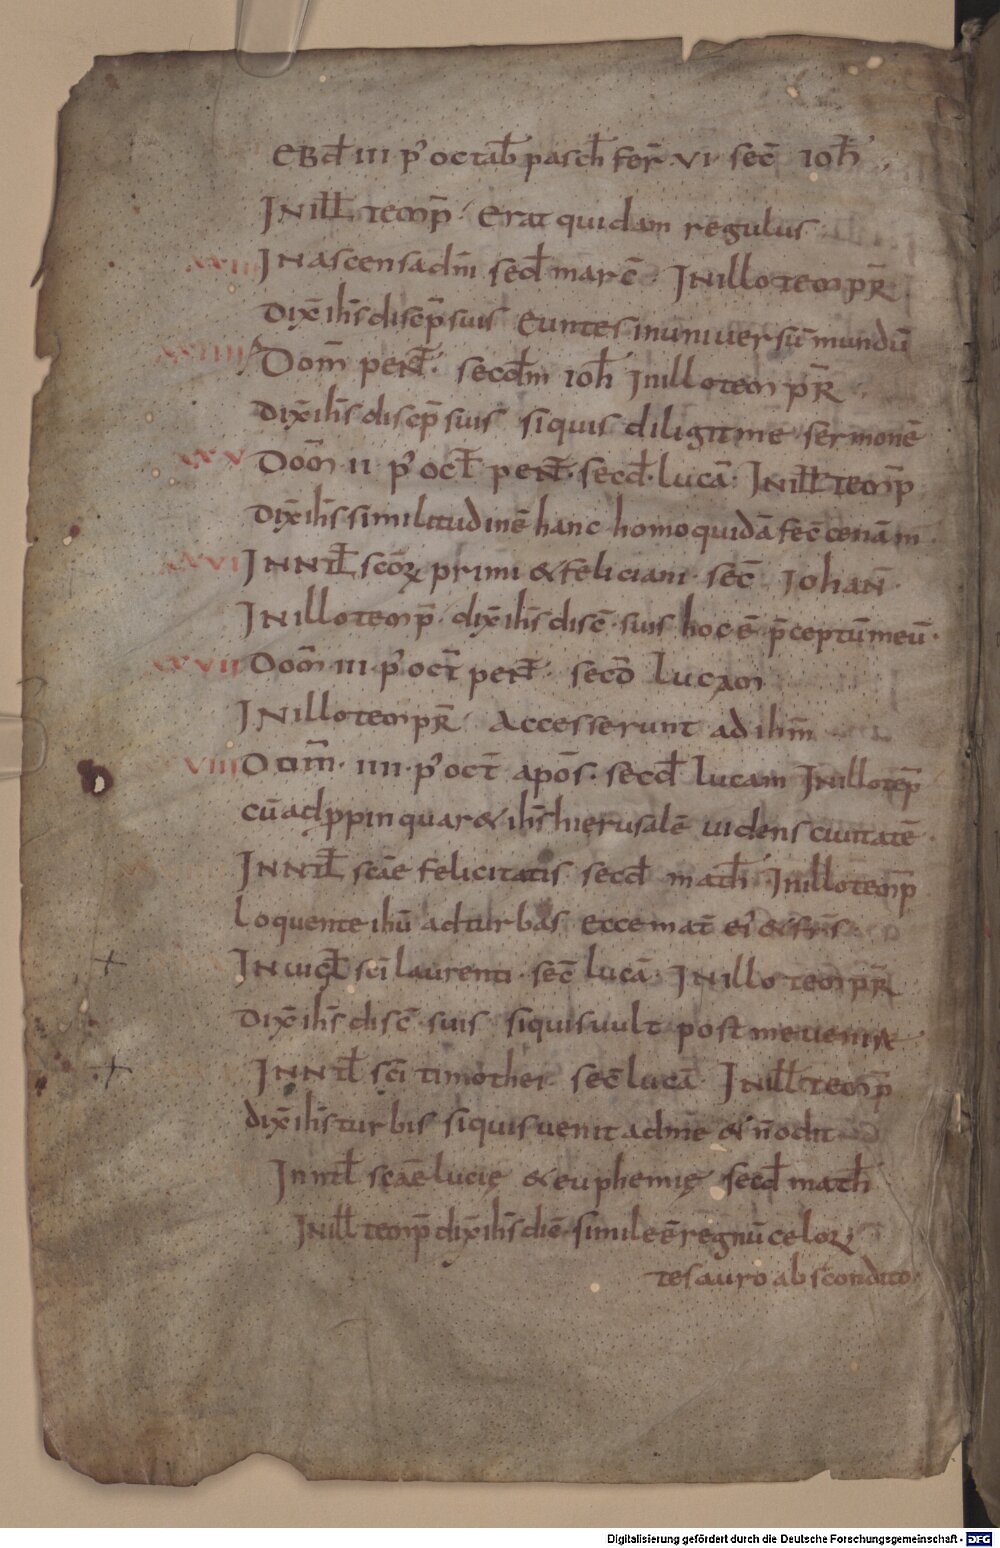 EBd̄ III p' octab̄ pasch̄ fer̄ VI· sec̄ ioh̄
INill̄ temp̄· Erat quidam regulus
XXIII INascensadn̄i secd̄ marc̄· INillo tempr̄
Dix̄ ih̄s discip̄ suis Euntes inuniuersū mundū
XXIIII Dom̄ pent̄· secd̄m ioh̄ Inillo tempr̄
Dix̄ ih̄s discp̄ suis siquis diligit me sermonē
XXV Dom̄ II p' oct̄ pent̄· secd̄· lucā· INill̄ temp̄
Dix̄ ih̄s similitudinē hanc homo quidā fec̄ cenam
XXVI INNtl̄ scōꝝ primi & feliciani· sec̄ Iohan̄·
INillo temp̄· dix̄ ih̄s disc̄· suis hoc ē· p̄ceptū meū·
XXVII Dom̄ III· p' oct̄ pent̄· secd̄ Lucam
INillo tempr̄· Accesserunt ad ih̄m
VIII Dom̄· IIII· p' oct̄ apōs· secd̄ lucam INillo tēp̄
cū adp̄pinquar& ih̄s hierusalē uidens ciuitatē·
INNtl̄ scāe felicitatis secd̄ math̄· Inillo temp̄
Loquente ihū ad turbas Ecce mat̄ ei' & fr̄s
+ IN uigl̄ sci laurenti· sec̄ lucā· INillo tempr̄
Dix̄ ih̄s disc̄· suis siquis uult post me uenire
+ INNtl̄ sci timothei sec̄ lucā· INill̄ temp̄
dix̄ ih̄s turbis siquis uenit ad me & n̄ odit
Inntl̄ scāe lucię & euphemię secd̄ math̄
INill̄ temp̄ dix̄ ih̄s dis̄· simile ē regnū celoꝝ
tesauro abscondito·
Digitalisierung gefördert durch die Deutsche Forschungsgemeinschaft - DFG